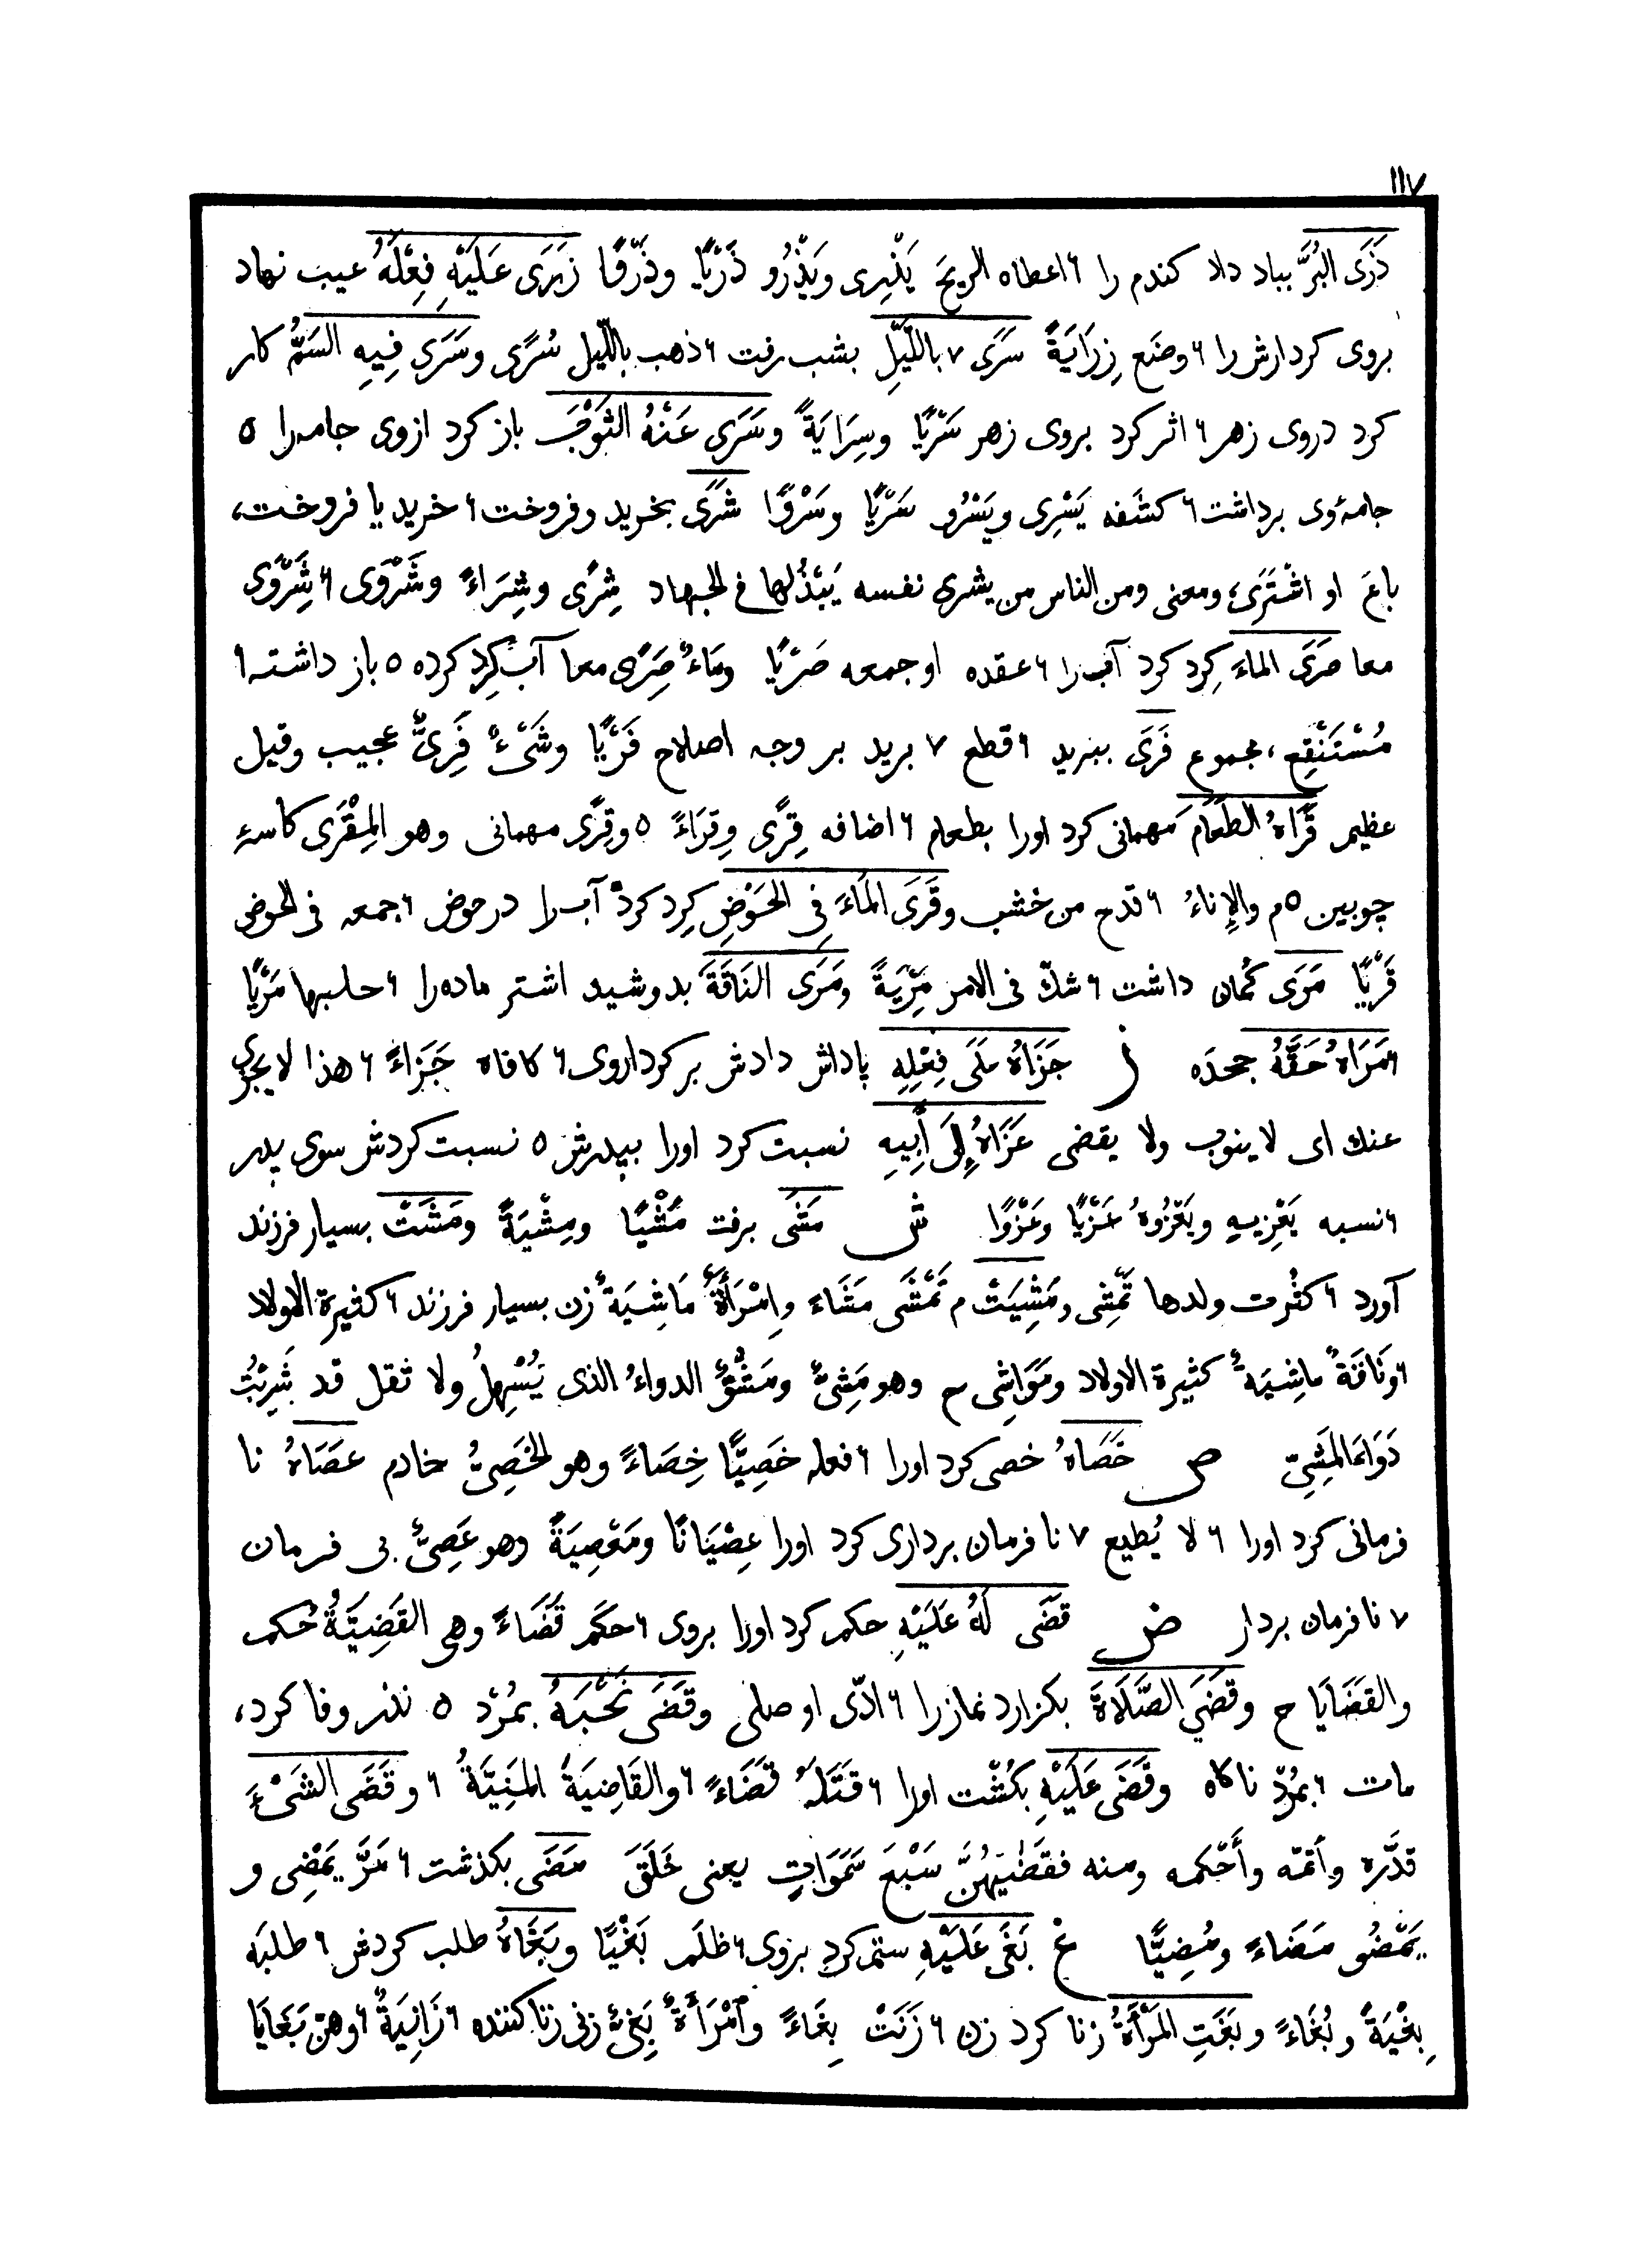 ١١٧
ذَرَی البُرَّ بباد داد کندم را ٦ اعطاه الریحَ یَذْرِی وَیَذْرُو ذَرْیًا وذَرْوًا زَرَی عَلَیْهِ فِعْلَهُ عیب نهاد
بروی کردارش را ٦ وضَع زِرَایَةً سَرَی ٧ باللَّیْلِ بشب رفت ٦ ذهب باللَّیل سُرًی وسَرَی فِیهِ السَمُّ کار
کرد دروی زهر ٦ اثر کرد بروی زهر سَرْیًا وسِرَایَةً وسَرَی عَنْهُ الثَوْبَ باز کرد ازوی جامه را ٥
جامهٔ وی برداشت ٦ کشَفه یَسْرِی ویَسْرُو سَرْیًا وسَرْوًا شَرَی بخرید وفروخت ٦ خرید یا فروخت،
باعَ او اشْتَرَی، ومعنی ومن الناس من یشری نفسه یَبْذُلها فی الجهاد شِرًی وشِرَاءً وشَرْوَی ٦ شِرْوًی
معا صَرَی الماءَ کِرد کرد آب را ٦ عقده او جمعه صَرْیًا وماءٌ صَِرًی معا آب کِرد کرده ٥ باز داشته ٦
مُسْتَنْقِع، مجموع فَرَی ببرید ٦ قطع ٧ برید بر وجه اصلاح فَرْیًا وشَیْءٌ فَرِیٌّ عجیب وقیل
عظیم قَرَاهُ الطَعَامَ مهمانی کرد اورا بطعام ٦ اضافه قِرًی وقِرَاءً ٥ وقِرًی مهمانی وهو المِقْرَی کاسهٔ
چوبین ٥ م والإناءُ ٦ قدح من خشب وقَرَی المَاءَ فِی الحَوْضِ کِرد کرد آب را در حوض ٦ جمعه فی الحوض
قَرْیًا مَرَی کُمان داشت ٦ شكّ فی الامر مِرْیَةً ومَرَی النَاقَةَ بدوشید اشتر ماده را ٦ حلبها مَرْیًا
٦ مَرَاهُ حَقَّهُ جحدَه ز جَزَاهُ عَلَی فِعْلِهِ پاداش دادش بر کردار وی ٦ کافاه جَزَاءً ٦ هذا لا یجزی
عنك ای لا ینوب ولا یقضی عَزَاهُ إلَی أبِیهِ نسبت کرد اورا بپدرش ٥ نسبت کردش سوی پدر
٦ نسبه یَعْزِیهِ ویَعْزُوهُ عَزْیًا وعَزْوًا ش مَشَی برفت مَشْیًا ومِشْیَةً ومَشَتْ بسیار فرزند
آورد ٦ کثُرت ولدها تَمْشِی ومَشِیَتْ م تَمْشَی مَشَاءً وامْرَأةٌ مَاشِیَةٌ زن بسیار فرزند ٦ کثیرة الاولاد
٦ ونَاقَةٌ ماشِیَةٌ کثیرة الاولاد ومَوَاشٍ ح وهو مَشِیٌّ ومَشُوٌّ الدواءُ الذی یُسْهِلُ ولا ثقل قد شَرِبْتُ
دَوَاءَ المَشِیّ ص خَصَاهُ خصی کرد اورا ٦ فعله خَصِیًّا خِصَاءً وهو الخَصِیُّ خادم عصَاهُ نا
فرمانی کرد اورا ٦ لا یُطیع ٧ نا فرمان برداری کرد اورا عِصْیَانًا ومَعْصِیَةً وهو عَصِیٌّ بی فرمان
٧ نا فرمان بردار ض قَضَی لَهُ عَلَیْهِ حکم کرد اورا بروی ٦ حکَم قَضَاءً وهی القَضِیَّةُ حُکم
والقَضَایَا ح وقَضَی الصَّلَاةَ بکزارد نماز را ٦ ادّی او صلی وقَضَی نَحْبَهُ بمُرد ٥ نذر وفا کرد،
مات ٦ بمُرد ناکاه وقَضَی عَلَیْهِ بکُشت اورا ٦ قَتَلهُ قضَاءً ٦ والقَاضِیَةُ المَنِیَّةُ ٦ وقَضَی الشَیْءَ
قدَّره وأتمّه وأَحْکمه ومنه فقَضٰیهُنَّ سَبْعَ سَمَوَاتٍ یعنی خَلَقَ مَضَی بکذشت ٦ مَرَّ یَمْضِی و
یَمْضُو مَضَاءً ومُضِیًّا غ بَغَی عَلَیْهِ ستم کرد بروی ٦ ظلَم بَغْیًا وبَغَاهُ طلب کردش ٦ طلبَه
بِغْیَةً وبُغَاءً وبَغَتِ المَرْأةُ زنا کرد زن ٦ زَنَتْ بِغَاءً وامْرَأةٌ بَغِیٌّ زنی زنا کننده ٦ زَانِیَةٌ ٦ وهنّ بَغَایَا